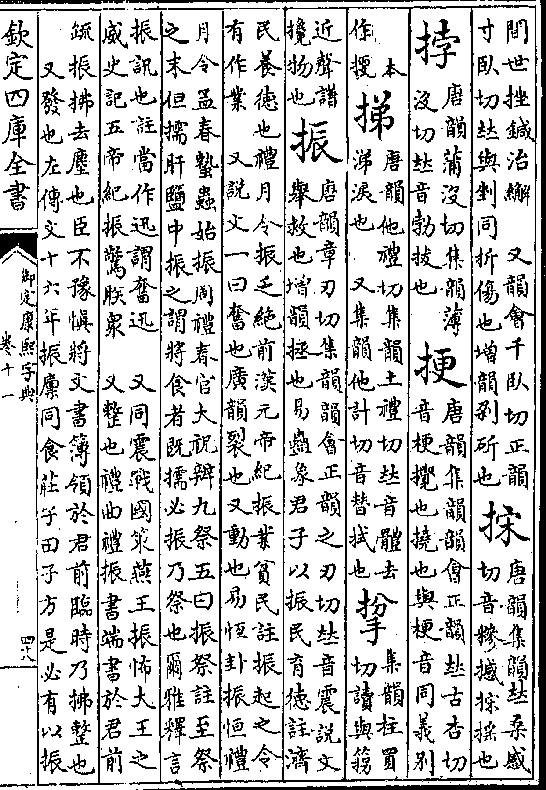 間世挫鍼治繲　又韻會千臥切正韻
寸臥切𠀤與剉同折傷也增韻剁斫也
唐韻集韻𠀤桑感
切音糝撼也
挬
唐韻蒲沒切集韻薄
沒切𠀤音勃拔也
挭
唐韻集韻韻會正韻𠀤古杏切
音梗攪也撓也與梗音同義別
本
作
挮
唐韻他禮切集韻土禮切𠀤音體去
涕淚也　又集韻他計切音替拭也
集韻柱買
切讀與篘
近聲譜
攪物也
振
唐韻章刃切集韻韻會正韻之刃切𠀤音震說文
舉救也增韻拯也易蠱象君子以振民育德註濟
民養德也禮月令振乏絕前漢元帝紀振業貧民註振起之令
有作業　又說文一曰奮也廣韻裂也又動也易恒卦振恒禮
月令孟春蟄蟲始振周禮春官大祝辨九祭五曰振祭註至祭
之末但擩肝鹽中振之謂將食者既擩必振乃祭也爾雅釋言
振訊也註當作迅謂奮迅　又同震戰國策燕王振怖大王之
威史記五帝紀振驚朕衆　又整也禮曲禮振書端書於君前
疏振拂去塵也臣不豫慎將文書簿領於君前臨時乃拂整也
又發也左傳文十六年振廩同食莊子田子方是必有以振
欽定四庫全書
御定康熙字典
卷十一
四八